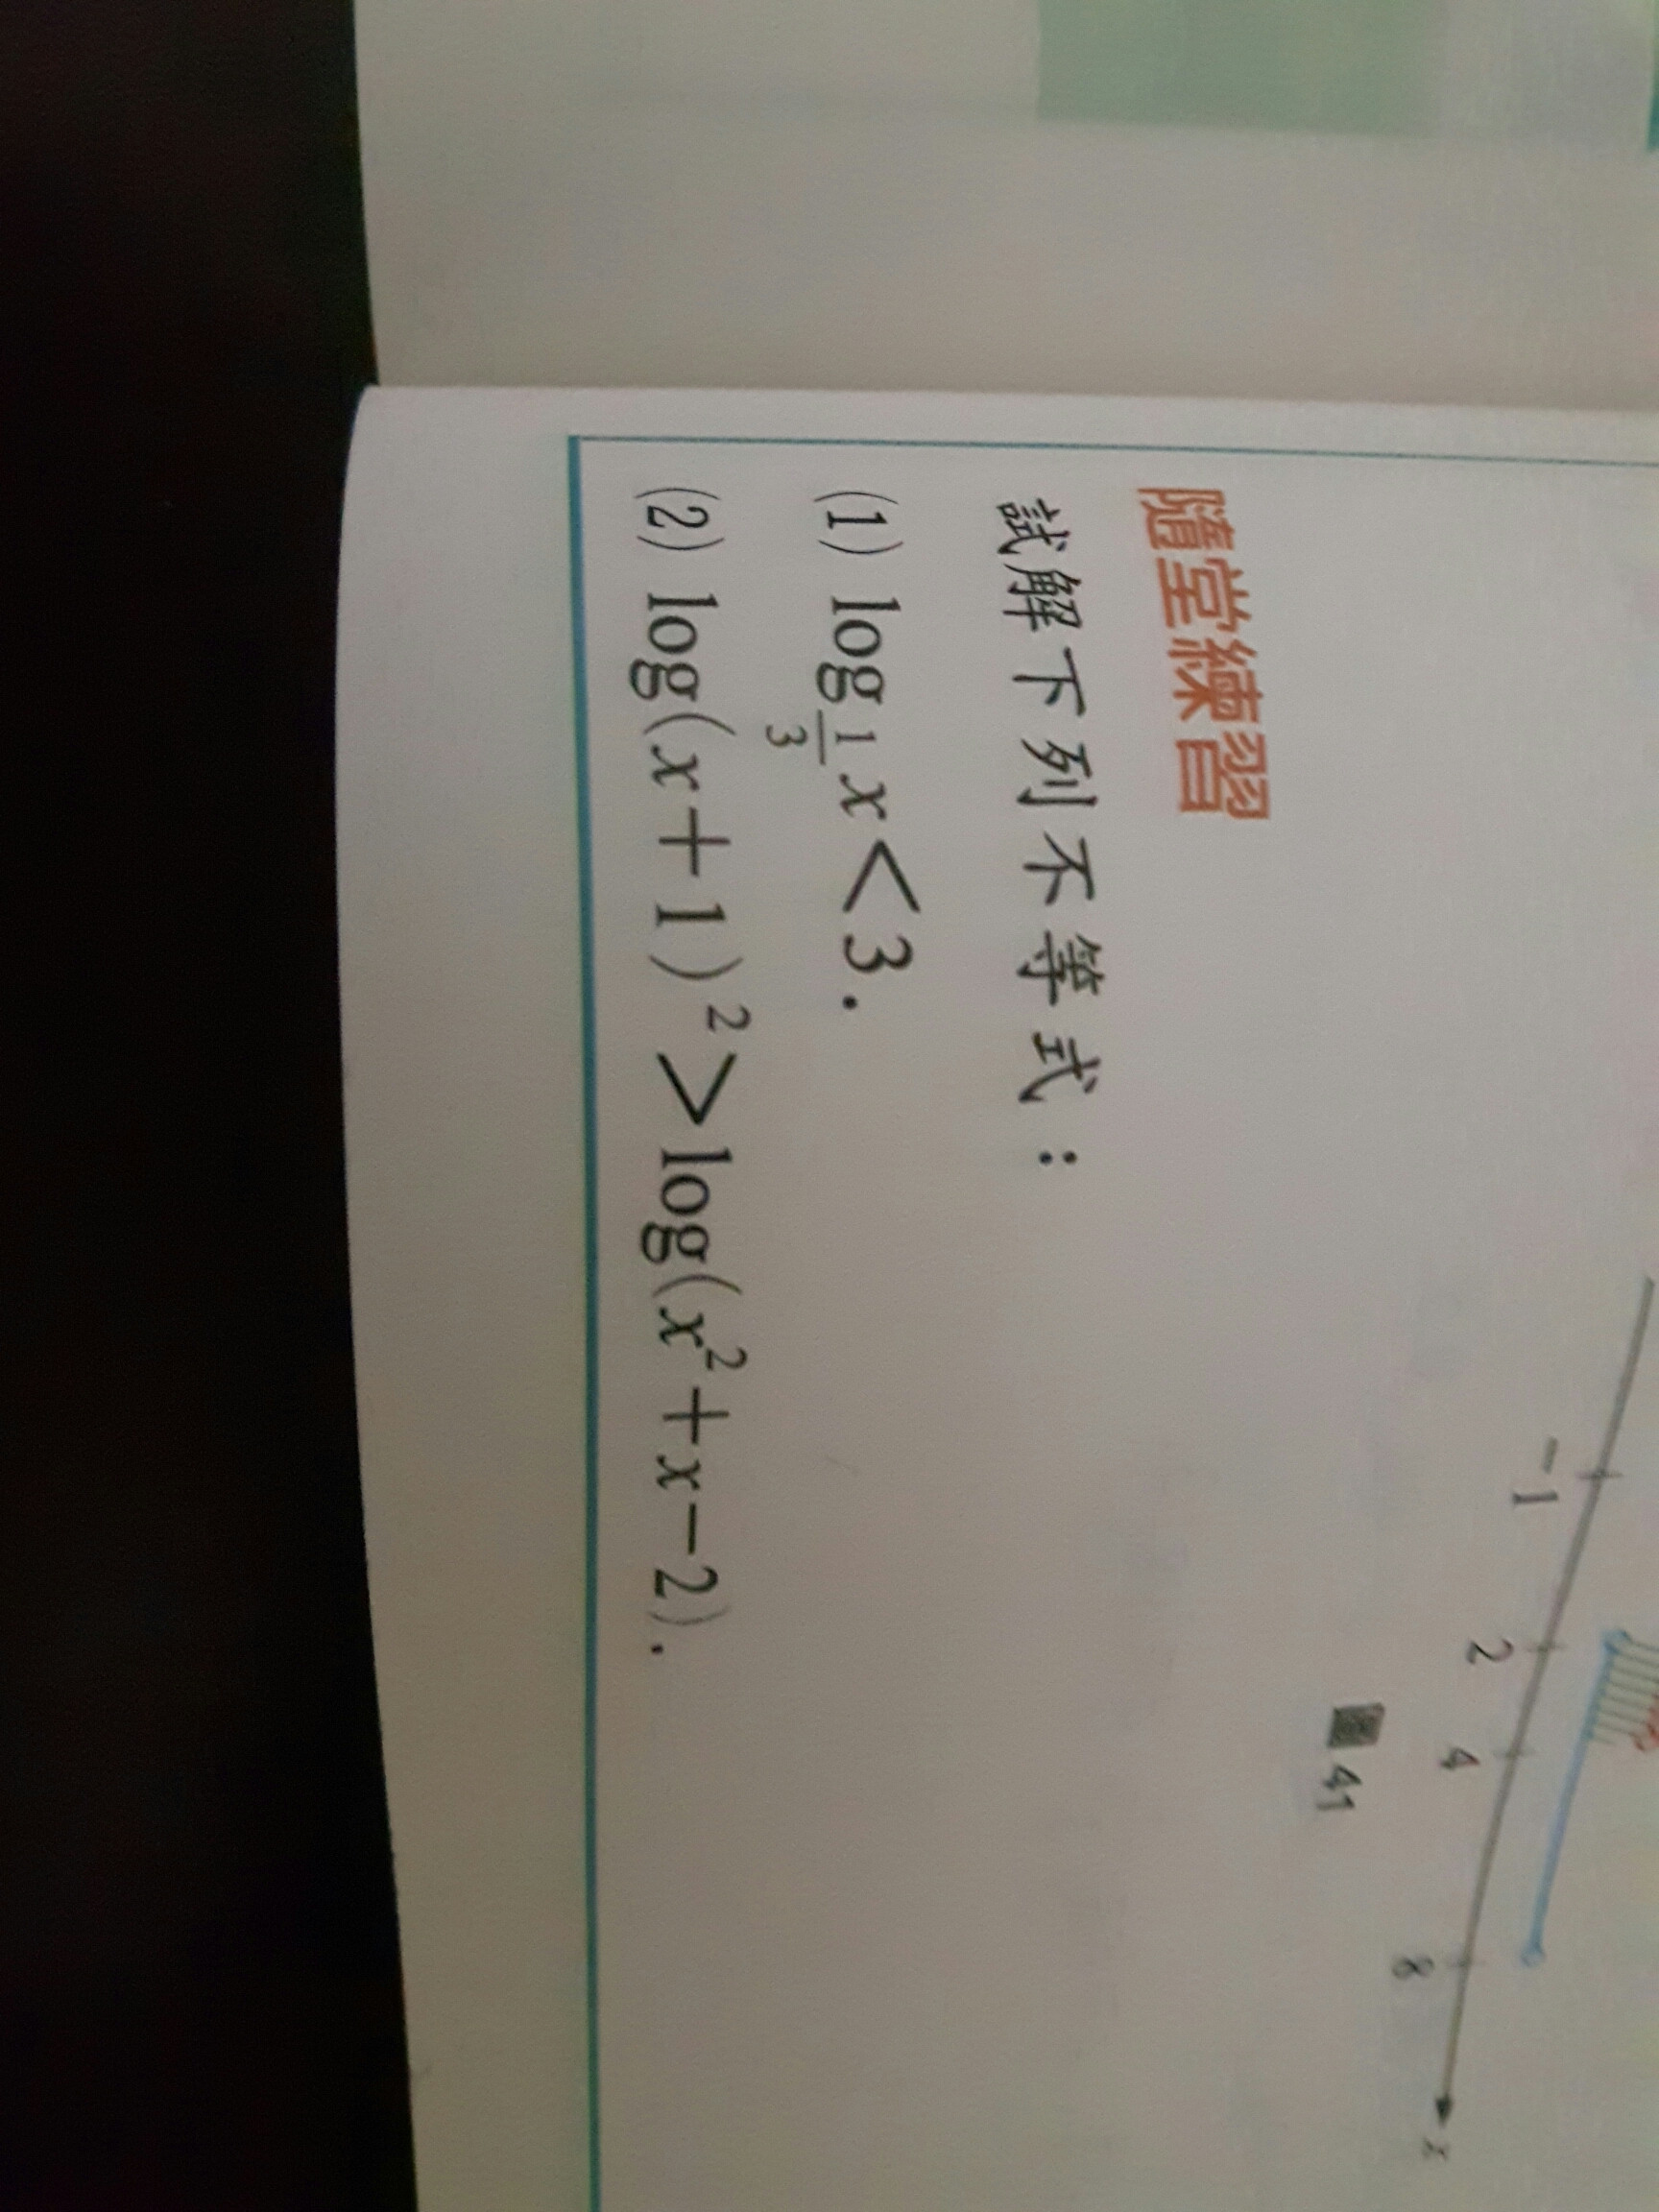 -1 2 4 8 x
圖 41
隨堂練習
試解下列不等式：
(1) log_{1/3} x < 3.
(2) log(x+1)² > log(x²+x−2).